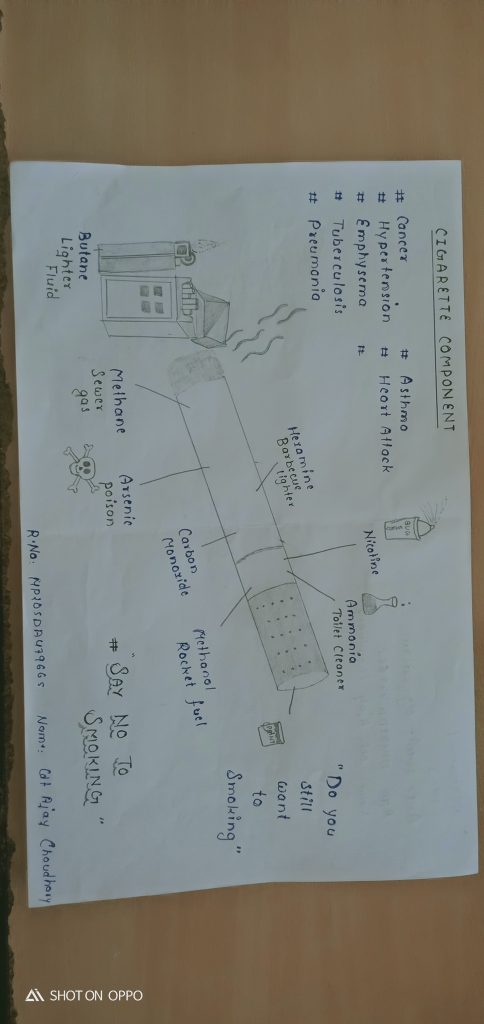 CIGARETTE COMPONENT
# Cancer # Asthma
# Hypertension # Heart Attack
# Emphysema #
# Tuberculosis
# Pneumania
BUG
Nicotine
Ammonia
Toilet Cleaner
Hexamine
Barbecue
lighter
"Do you
still
want
to
Smoking"
Butane
Lighter
Fluid
Methane
Sewer
gas
Arsenic
poison
Carbon
Monoxide
Methanol
Rocket fuel
# "SAY NO TO
SMOKING"
Name:- Cdt Ajay Choudhary
SHOT ON OPPO